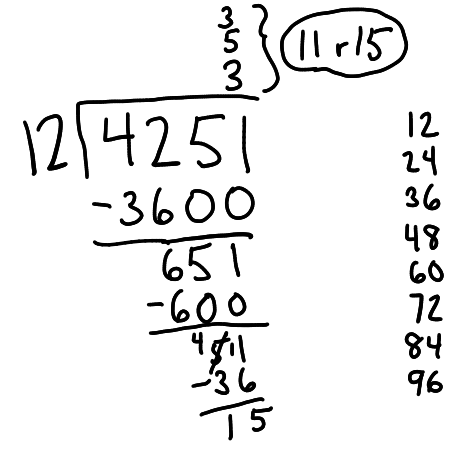 3
5
3
11 r15
12 4251
-3600
651
-600
4 5 11
-36
15
12
24
36
48
60
72
84
96